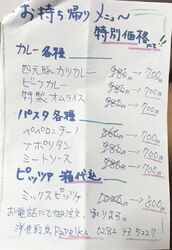 お持ち帰りメニュー
特別価格にて!!
カレー各種
四元豚カツカレー 980 → 700円
ビーフカレー 980 → 700円
特製オムライス 980 → 700円
パスタ各種
ペペロンチーノ 860 → 700円
ナポリタン → 700円
ミートソース → 700円
ピッツァ 箱代込
ミックスピッツァ → 800円
お電話にて御注文、承ります。
洋食厨房 PAPRIKA 0282 43 5227